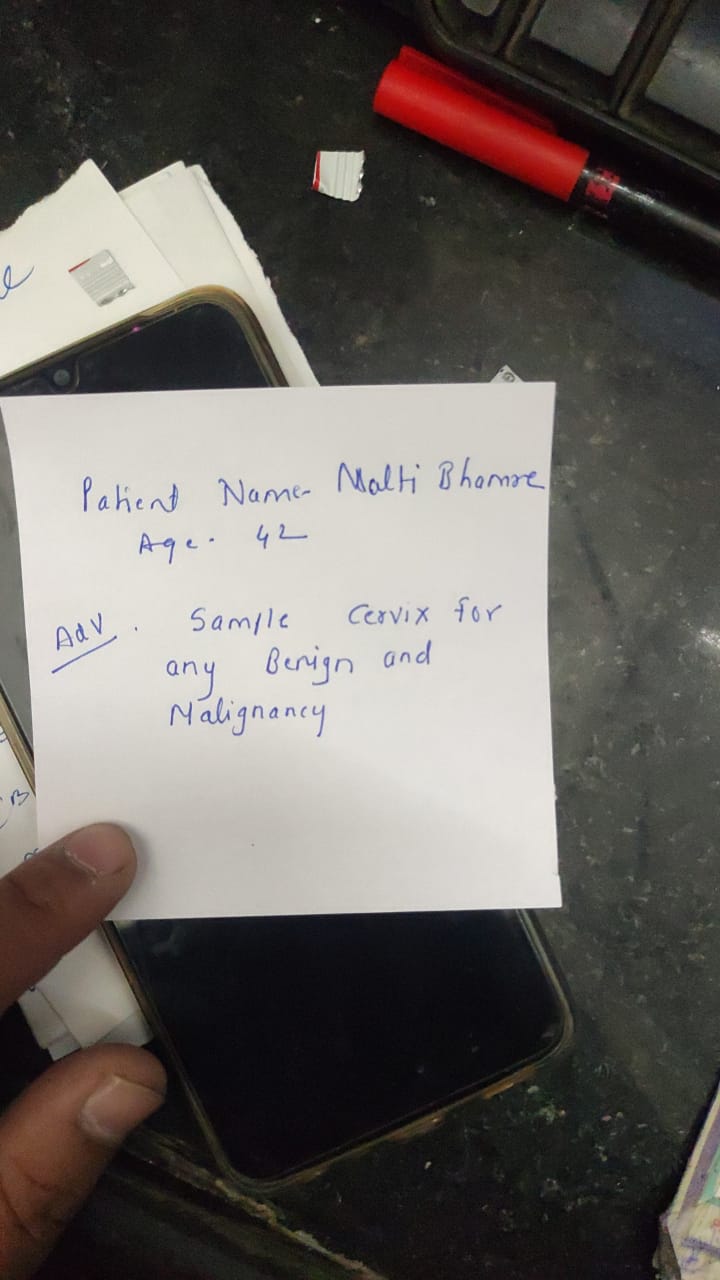 Patient Name- Malti Bhamre
Age. 42
Adv. Sample Cervix for
any Benign and
Malignancy